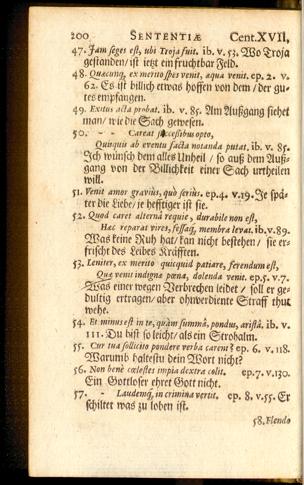 200 SENTENTIÆ Cent. XVII,
47. Jam seges est, ubi Troja fuit. ib. v. 53. Wo Troja
gestanden/ ist ietzt ein fruchtbar Feld.
48. Quacunq, ex merito spes venit, aqua venit. ep. 2. v.
62. Es ist billich etwas hoffen von dem/ der gu-
tes empfangen.
49. Exitus acta probat. ib. v. 85. Am Außgang siehet
man/ wie die Sach gewesen.
50. - - Careat successibus opto,
Quisquis ab eventu facta notanda putat. ib. v. 85.
Ich wünsch dem alles Unheil/ so auß dem Auß-
gang von der Billichkeit einer Sach urtheilen
will.
51. Venit amor graviùs, quò seriùs. ep. 4. v. 19. Je spä-
ter die Liebe/ je hefftiger ist sie.
52. Quod caret alternâ requie, durabile non est,
Hac reparat vires, fessaq, membra levat. ib. v. 89.
Was keine Ruh hat/ kan nicht bestehen/ sie er-
frischt des Leibes Kräfften.
53. Leniter, ex merito quicquid patiare, ferendum est,
Quæ venit indigna pœna, dolenda venit. ep. 5. v. 7.
Was einer wegen Verbrechen leidet/ soll er ge-
dultig ertragen/ aber ohnverdiente Straff thut
wehe.
54. Et minus est in te, quàm summâ, pondus, aristâ. ib. v.
111. Du bist so leicht/ als ein Strohalm.
55. Cur tua sollicito pondere verba carent? ep. 6. v. 118.
Warumb haltestu dein Wort nicht?
56. Non benè cœlestes impia dextra colit. ep. 7. v. 130.
Ein Gottloser ehret Gott nicht.
57. - - Laudemq, in crimina vertit. ep. 8. v. 55. Er
schiltet was zu loben ist.
58. Flendo